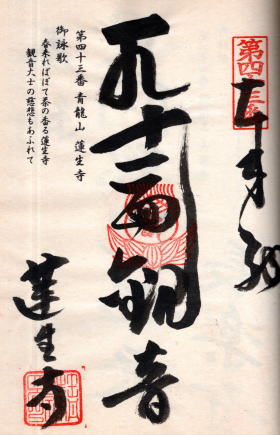 第四十三番
十一面観音
第四十三番 青龍山 蓮生寺
御詠歌
春来ればぼて茶の香る蓮生寺
観音大士の慈悲もあふれて
蓮生寺